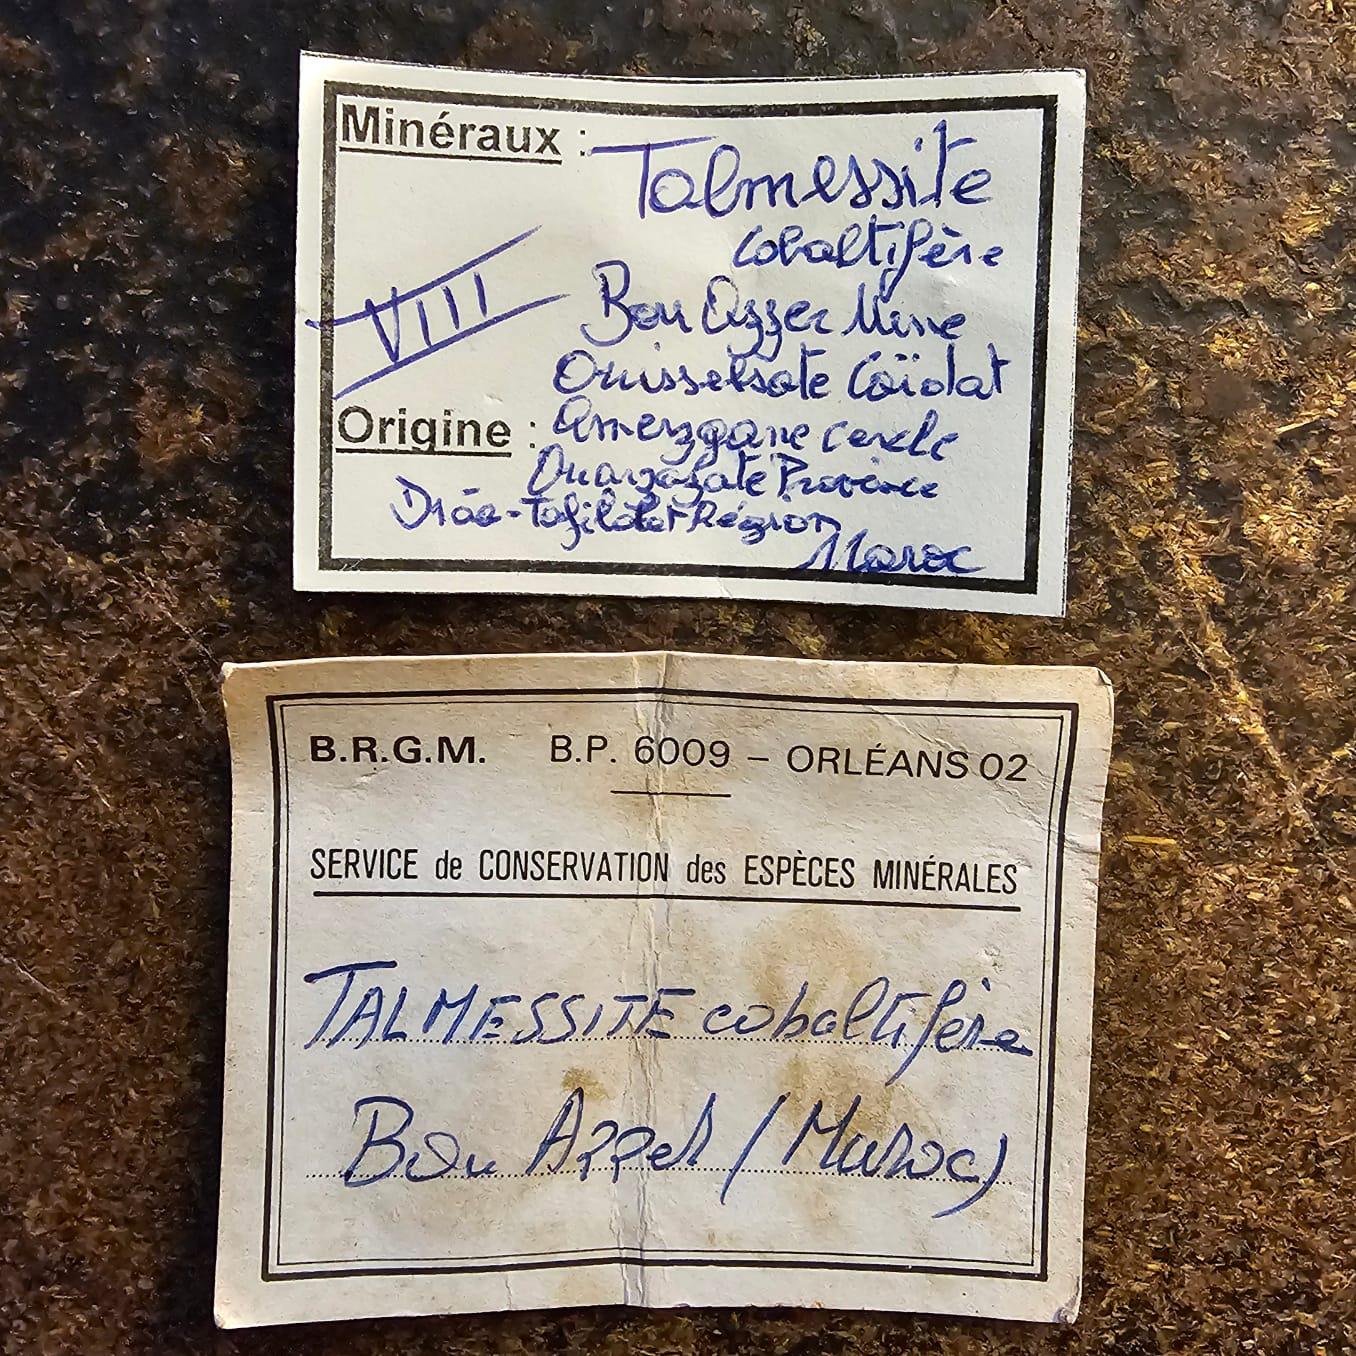 Minéraux : Talmessite
cobaltifère
VIII
Bou Azzer Mine
Ouisselsate Caïdat
Origine : Amerzgane cercle
Ouarzazate Province
Drâa-Tafilalet Région
Maroc
B.R.G.M. B.P. 6009 – ORLÉANS 02
SERVICE de CONSERVATION des ESPÈCES MINÉRALES
TALMESSITE cobaltifère
Bou Azzer (Maroc)